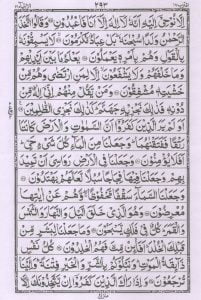 ٢٩٣
اِلَّا نُوْحِيْۤ اِلَيْهِ اَنَّهٗ لَاۤ اِلٰهَ اِلَّاۤ اَنَا فَاعْبُدُوْنِ ۝ وَقَالُوا اتَّخَذَ
الرَّحْمٰنُ وَلَدًا سُبْحٰنَهٗ ؕ بَلْ عِبَادٌ مُّكْرَمُوْنَ ۝ لَا يَسْبِقُوْنَهٗ
بِالْقَوْلِ وَهُمْ بِاَمْرِهٖ يَعْمَلُوْنَ ۝ يَعْلَمُ مَا بَيْنَ اَيْدِيْهِمْ
وَمَا خَلْفَهُمْ وَلَا يَشْفَعُوْنَ ۙ اِلَّا لِمَنِ ارْتَضٰى وَهُمْ مِّنْ
خَشْيَتِهٖ مُشْفِقُوْنَ ۝ وَمَنْ يَّقُلْ مِنْهُمْ اِنِّيْۤ اِلٰهٌ مِّنْ
دُوْنِهٖ فَذٰلِكَ نَجْزِيْهِ جَهَنَّمَ ؕ كَذٰلِكَ نَجْزِي الظّٰلِمِيْنَ ۝
اَوَلَمْ يَرَ الَّذِيْنَ كَفَرُوْۤا اَنَّ السَّمٰوٰتِ وَالْاَرْضَ كَانَتَا
رَتْقًا فَفَتَقْنٰهُمَا ؕ وَجَعَلْنَا مِنَ الْمَآءِ كُلَّ شَيْءٍ حَيٍّ ؕ
اَفَلَا يُؤْمِنُوْنَ ۝ وَجَعَلْنَا فِي الْاَرْضِ رَوَاسِيَ اَنْ تَمِيْدَ
بِهِمْ وَجَعَلْنَا فِيْهَا فِجَاجًا سُبُلًا لَّعَلَّهُمْ يَهْتَدُوْنَ ۝
وَجَعَلْنَا السَّمَآءَ سَقْفًا مَّحْفُوْظًا ۖ وَّهُمْ عَنْ اٰيٰتِهَا
مُعْرِضُوْنَ ۝ وَهُوَ الَّذِيْ خَلَقَ الَّيْلَ وَالنَّهَارَ وَالشَّمْسَ
وَالْقَمَرَ ؕ كُلٌّ فِيْ فَلَكٍ يَّسْبَحُوْنَ ۝ وَمَا جَعَلْنَا لِبَشَرٍ مِّنْ
قَبْلِكَ الْخُلْدَ ؕ اَفَا۟ئِنْ مِّتَّ فَهُمُ الْخٰلِدُوْنَ ۝ كُلُّ نَفْسٍ
ذَآئِقَةُ الْمَوْتِ ؕ وَنَبْلُوْكُمْ بِالشَّرِّ وَالْخَيْرِ فِتْنَةً ؕ وَاِلَيْنَا
تُرْجَعُوْنَ ۝ وَاِذَا رَاٰكَ الَّذِيْنَ كَفَرُوْۤا اِنْ يَّتَّخِذُوْنَكَ اِلَّا